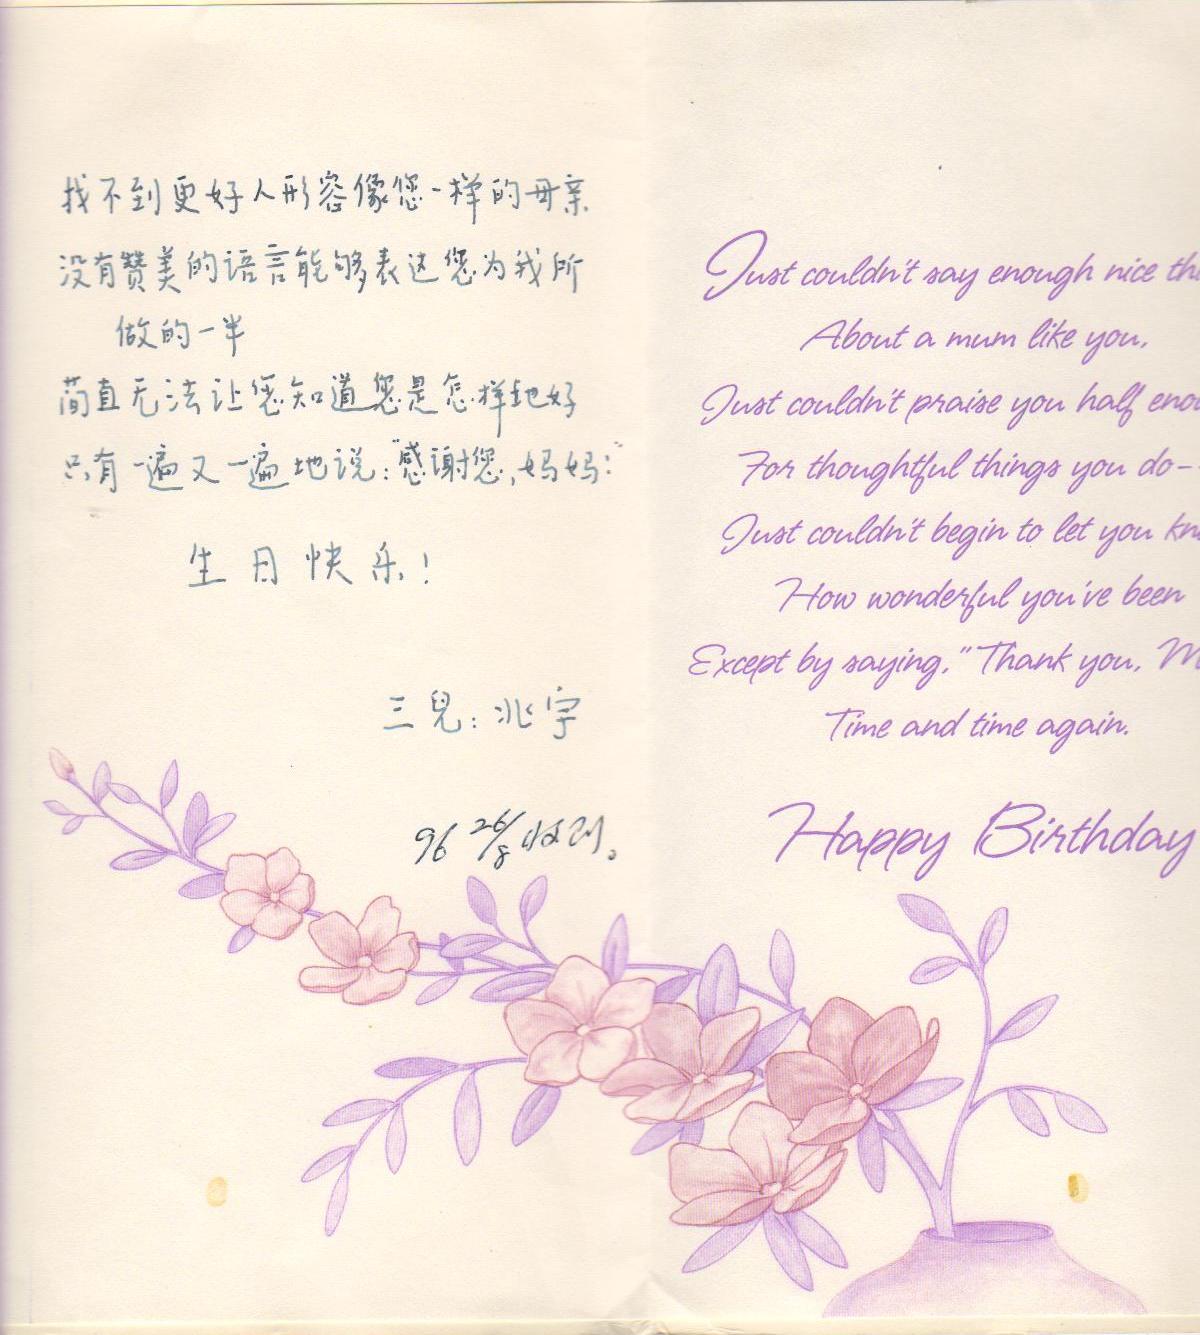 找不到更好人形容像您一样的母亲
没有赞美的语言能够表达您为我所
做的一半
简直无法让您知道您是怎样地好
只有一遍又一遍地说:“感谢您,妈妈:”
生日快乐!
三兒:兆宇
96 26/8 收到。
Just couldn't say enough nice
About a mum like you,
Just couldn't praise you half
For thoughtful things you do-
Just couldn't begin to let you
How wonderful you've been
Except by saying, "Thank you,
Time and time again.
Happy Birthday